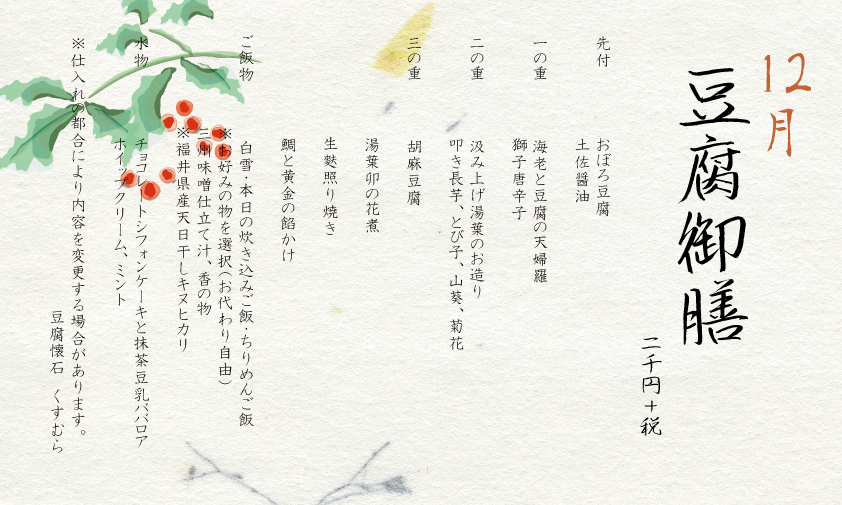 12月
豆腐御膳
二千円＋税
先付
おぼろ豆腐
土佐醤油
一の重
海老と豆腐の天婦羅
獅子唐辛子
二の重
汲み上げ湯葉のお造り
叩き長芋、とび子、山葵、菊花
三の重
胡麻豆腐
湯葉卯の花煮
生麩照り焼き
鯛と黄金の餡かけ
ご飯物
白雪・本日の炊き込みご飯・ちりめんご飯
※お好みの物を選択（お代わり自由）
三州味噌仕立て汁、香の物
※福井県産天日干しキヌヒカリ
水物
チョコレートシフォンケーキと抹茶豆乳ババロア
ホイップクリーム、ミント
※仕入れの都合により内容を変更する場合があります。
豆腐懐石　くすむら